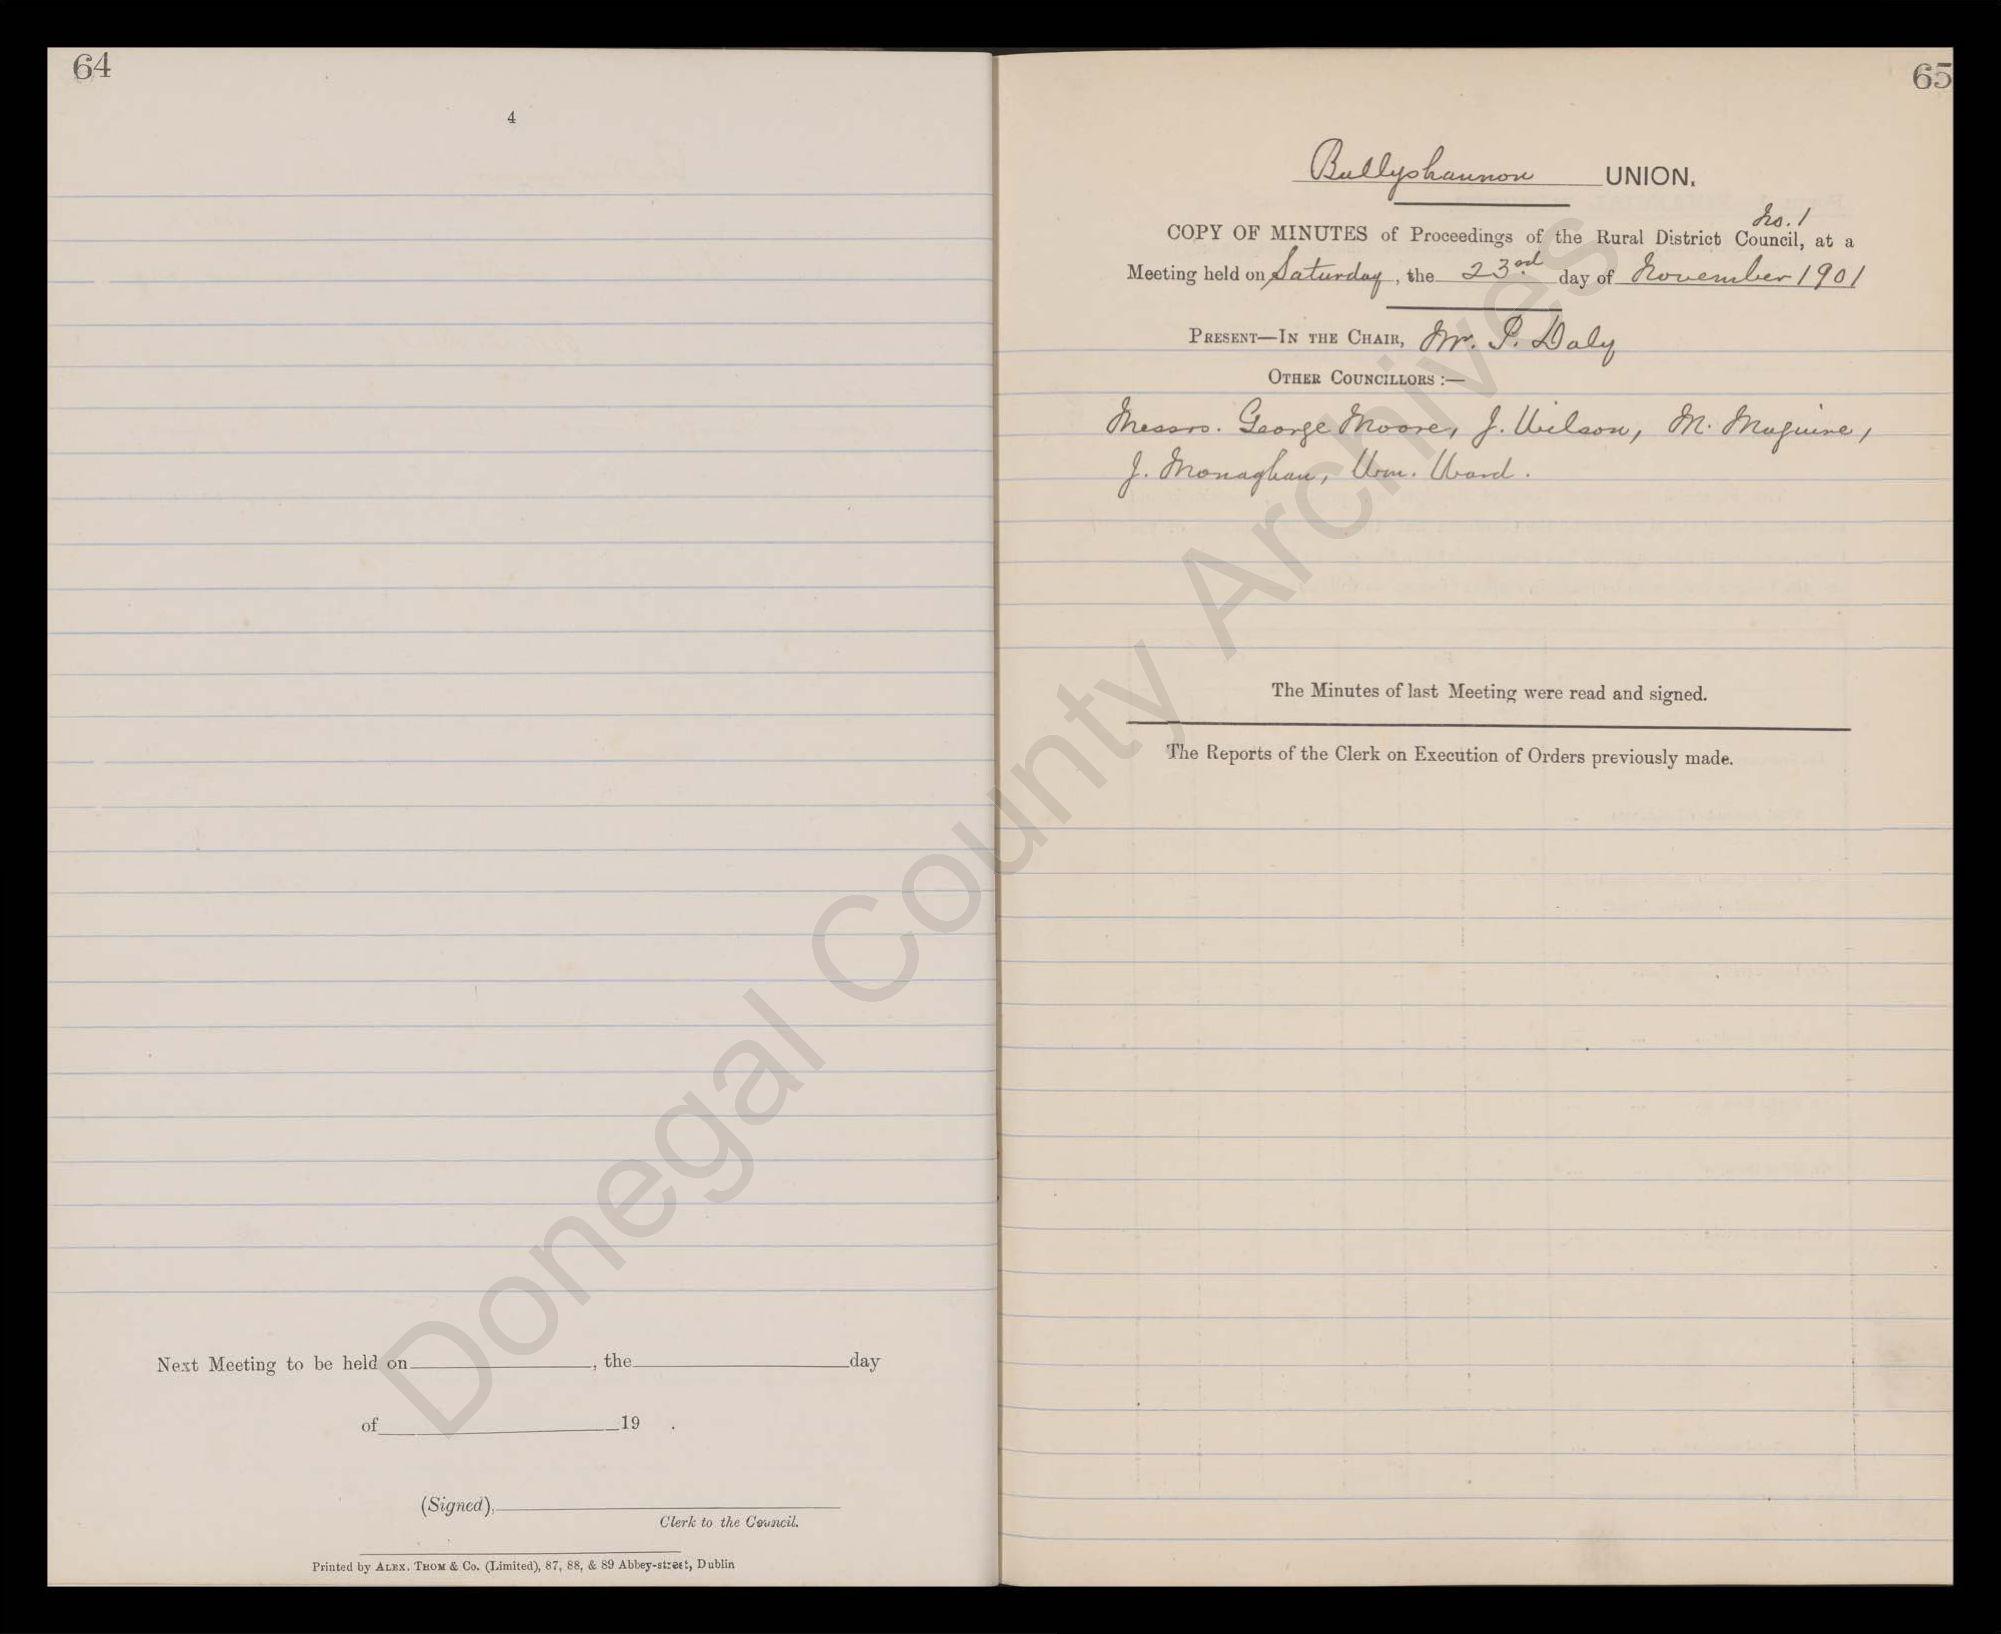 64
4
Next Meeting to be held on , the day
of 19 .
(Signed),
Clerk to the Council.
Printed by ALEX. THOM & Co. (Limited), 87, 88, & 89 Abbey-street, Dublin
65
Ballyshannon UNION.
No. 1
COPY OF MINUTES of Proceedings of the Rural District Council, at a
Meeting held on Saturday, the 23rd day of November 1901
PRESENT—IN THE CHAIR, Mr. P. Daly
OTHER COUNCILLORS :—
Messrs. George Moore, J. Wilson, M. Maguire,
J. Monaghan, Wm. Ward.
The Minutes of last Meeting were read and signed.
The Reports of the Clerk on Execution of Orders previously made.
Donegal County Archives